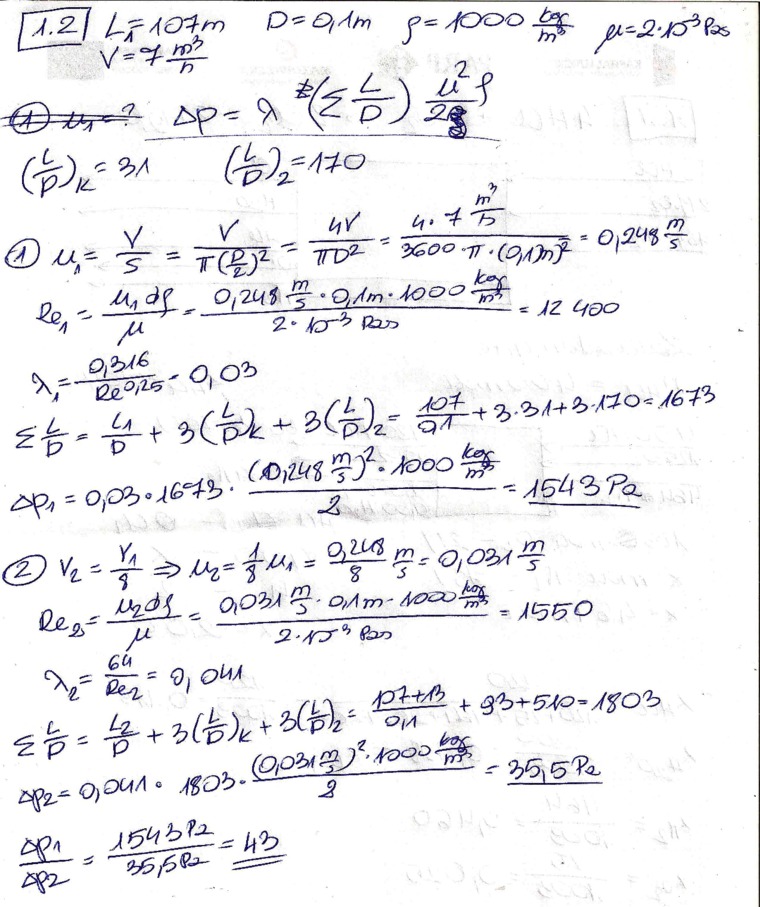 1.2 L₁=107m D=0,1m ρ=1000 kg/m³ μ=2·10⁻³Pas
V=7 m³/h
① u₁=? Δp = λ (Σ L/D) u²/2 ρ
(L/D)k = 31 (L/D)₂ = 170
① u₁ = V/S = V/(π(D/2)²) = 4V/(πD²) = (4·7 m³/h)/(3600·π·(0,1m)²) = 0,248 m/s
Re₁ = u₁dρ/μ = (0,248 m/s · 0,1m · 1000 kg/m³)/(2·10⁻³ Pas) = 12 400
λ₁ = 0,316/Re^0,25 = 0,03
Σ L/D = L₁/D + 3(L/D)k + 3(L/D)₂ = 107/0,1 + 3·31 + 3·170 = 1673
Δp₁ = 0,03 · 1673 · ((0,248 m/s)² · 1000 kg/m³)/2 = 1543 Pa
② V₂ = V₁/8 ⇒ u₂ = 1/8 u₁ = 0,248/8 m/s = 0,031 m/s
Re₂ = u₂dρ/μ = (0,031 m/s · 0,1m · 1000 kg/m³)/(2·10⁻³ Pas) = 1550
λ₂ = 64/Re₂ = 0,041
Σ L/D = L₂/D + 3(L/D)k + 3(L/D)₂ = (107+13)/0,1 + 93 + 510 = 1803
Δp₂ = 0,041 · 1803 · ((0,031 m/s)² · 1000 kg/m³)/2 = 35,5 Pa
Δp₁/Δp₂ = 1543 Pa/35,5 Pa = 43